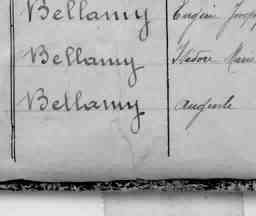 Bellamy Eugène Joseph
Bellamy Isidore Marie
Bellamy Auguste